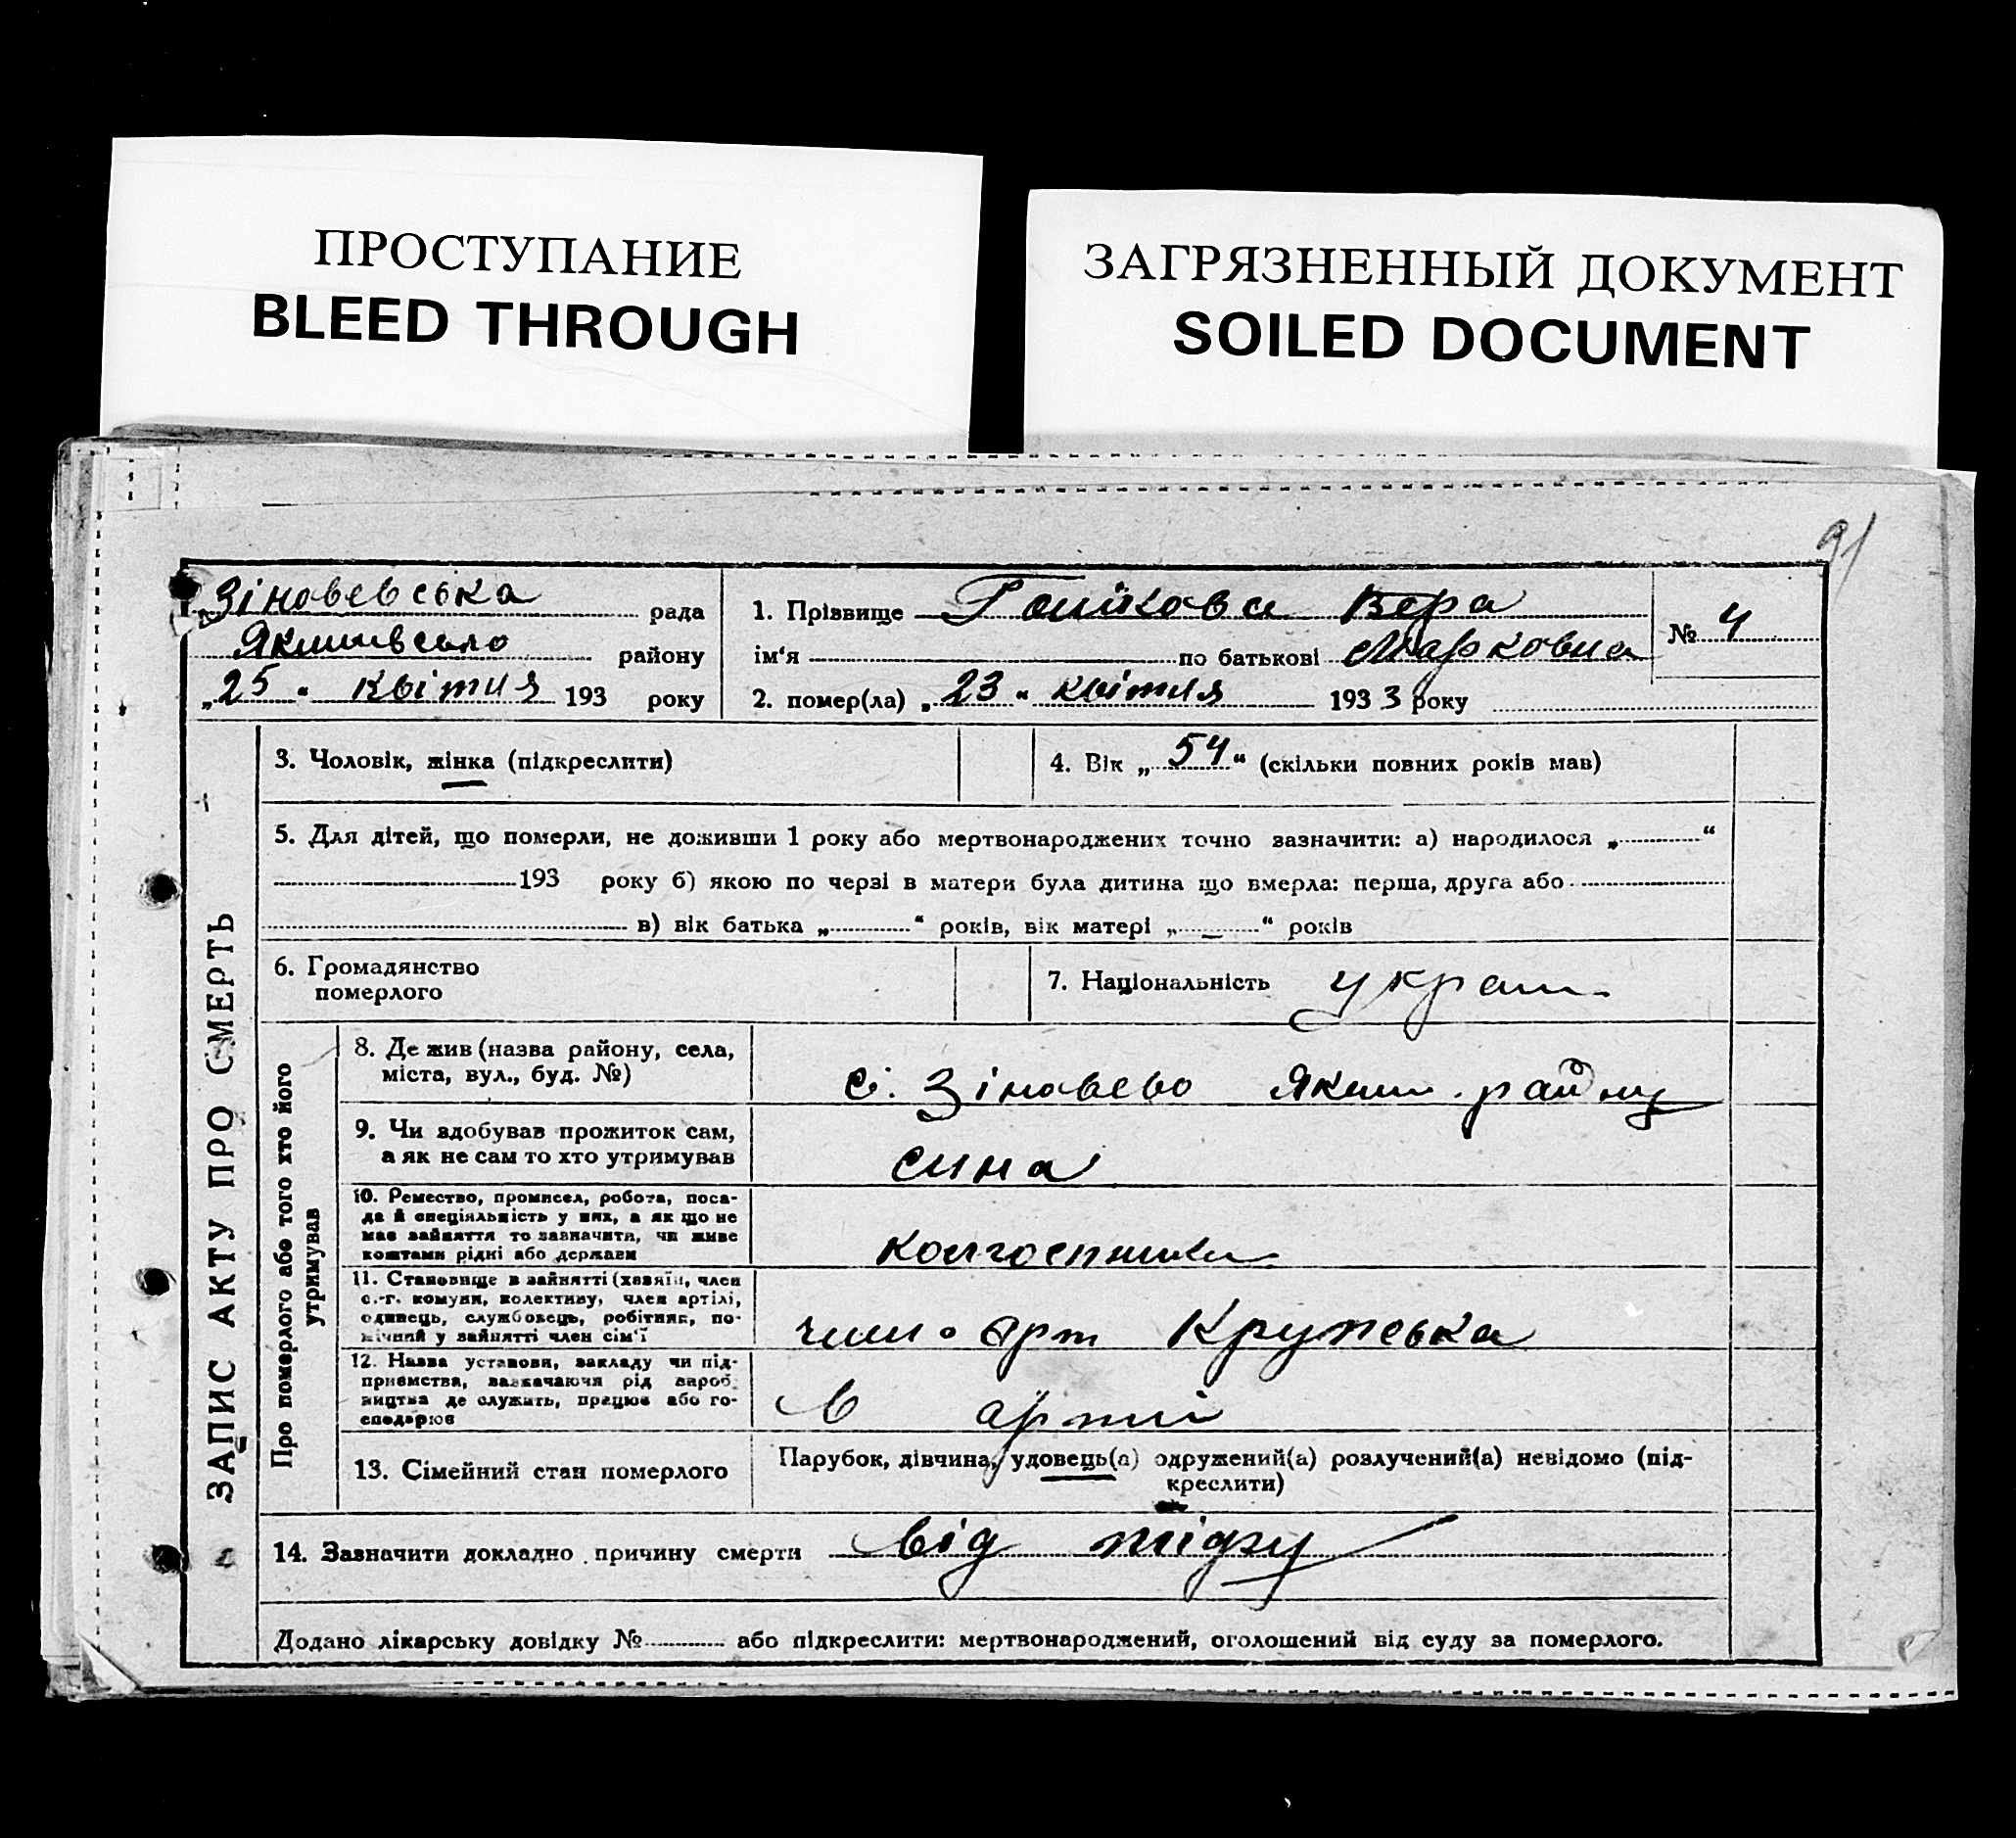 ПРОСТУПАНИЕ
BLEED THROUGH
ЗАГРЯЗНЕННЫЙ ДОКУМЕНТ
SOILED DOCUMENT
91
Зіновєвська рада
районy
„25“ квітня 193 року
1. Прізвище Вєра
ім‘я по батькові Марковна
2. помер(ла) „23“ квітня 1933 року
№ 4
ЗАПИС АКТУ ПРО СМЕРТЬ
3. Чоловік, жінка (підкреслити)
4. Вік „54“ (скільки повних років мав)
5. Для дітей, що померли, не доживши 1 року або мертвонароджених точно зазначити: а) народилося „ “
193 року б) якою по черзі в матери була дитина що вмерла: перша, друга або
в) вік батька „ “ років, вік матері „ “ років
6. Громадянство
померлого
7. Національність украин.
Про померлого або того хто його
утримував
8. Де жив (назва району, села,
міста, вул., буд. №)
с. Зіновєво Яким. району
9. Чи здобував прожиток сам,
а як не сам то хто утримував
сина
10. Ремество, промисел, робота, поса-
да й спеціяльність у них, а як що не
має зайняття то зазначити, чи живе
коштами рідні або держави
колгоспника
11. Становище в зайнятті (хазяїн, член
с.-г. комуни, колективу, член артілі,
одинець, службовець, робітник, по-
мічний у зайнятті член сім‘ї
член арт Крупська
12. Назва установи, закладу чи під-
приємства, зазначаючи рід вироб
ництва де служить, працює або го-
сподарює
в артілі
13. Сімейний стан померлого
Парубок, дівчина, удовець(а) одружений(а) розлучений(а) невідомо (під-
креслити)
14. Зазначити докладно причину смерти від
Додано лікарську довідку № або підкреслити: мертвонароджений, оголошений від суду за померлого.